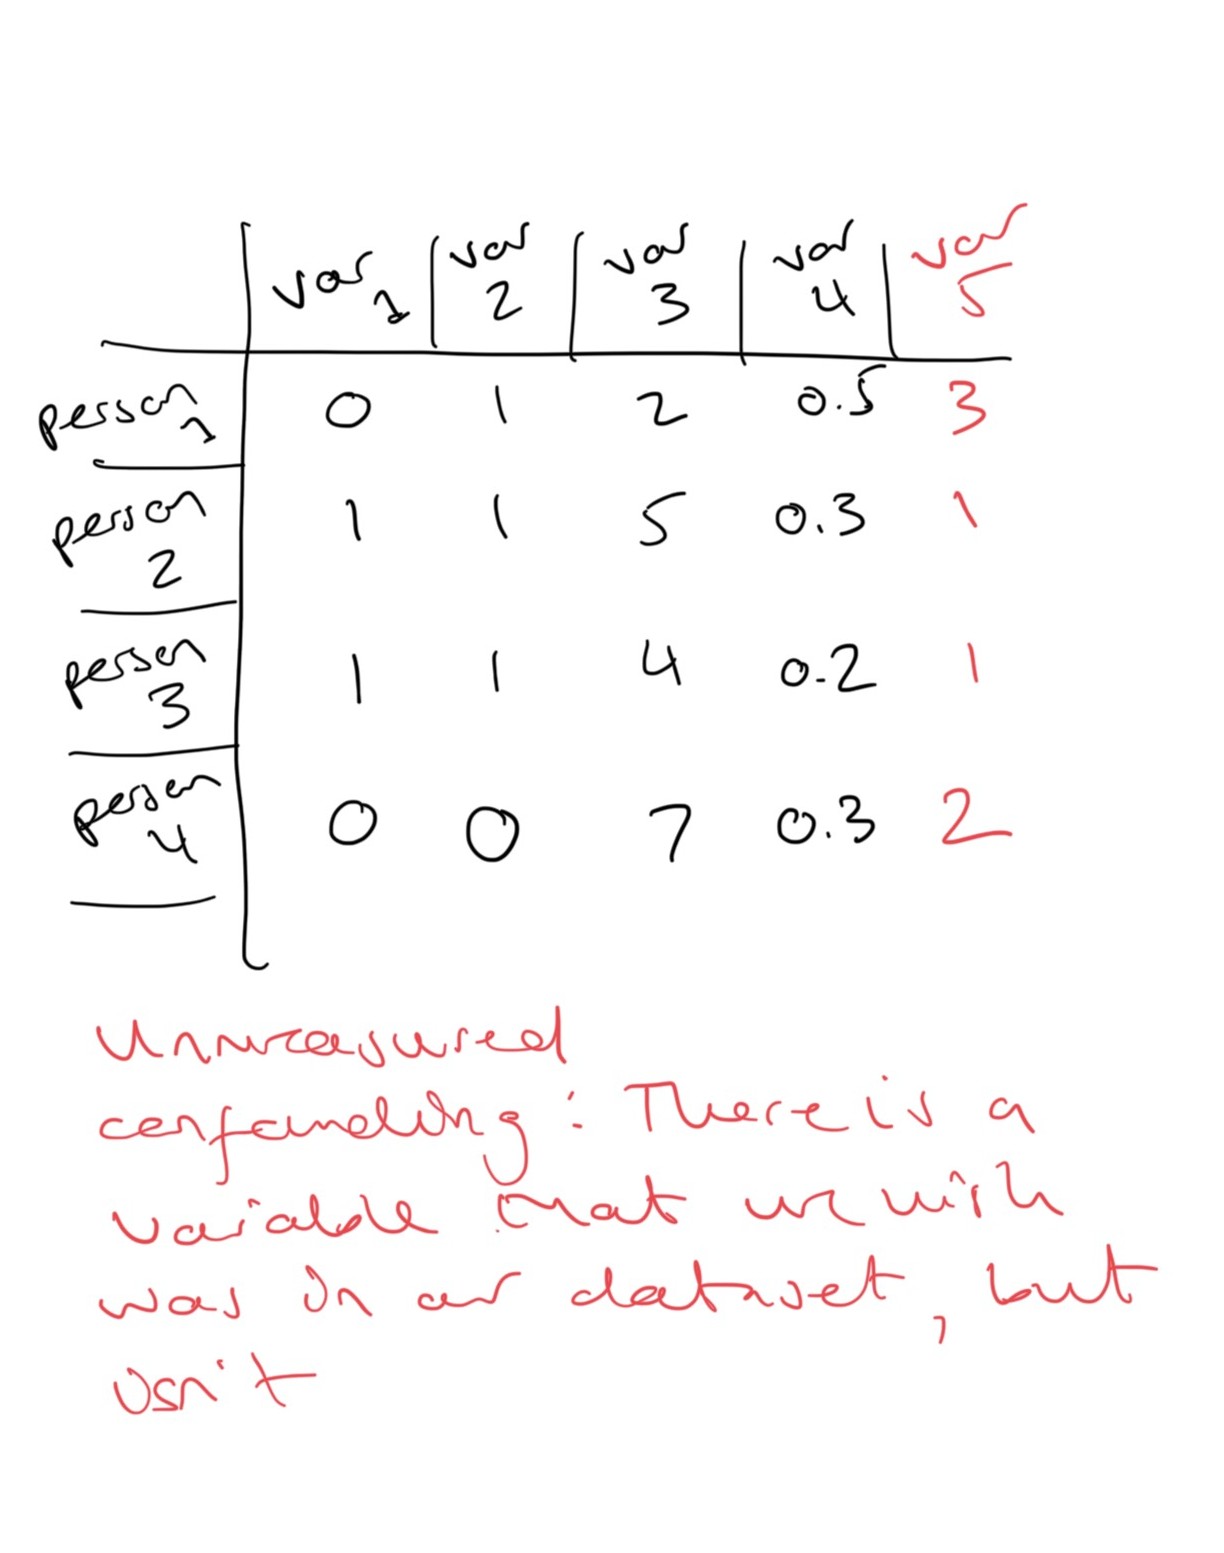 var 1 var 2 var 3 var 4 var 5
person 1 0 1 2 0.5 3
person 2 1 1 5 0.3 1
person 3 1 1 4 0.2 1
person 4 0 0 7 0.3 2
Unmeasured
confounding: There is a
variable that we wish
was in our dataset, but
isn't